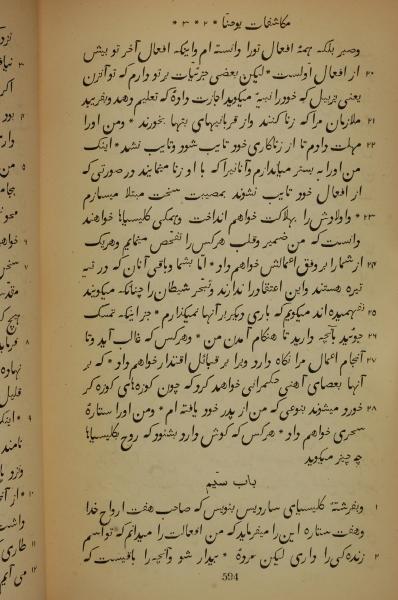 مکاشفات یوحنّا * ۲ * ۳ *
وصبر بلکه همهٔ افعال تورا دانسته ام واینکه افعال آخر تو بیش
۲۰ از افعال اوّلست * لیکن بعضی جزئیّات بر تو دارم که توآنزن
یعنی یزبیل که خودرا نبیّه میگوید اجازت دادهٔ که تعلیم دهد وبفریبد
۲۱ ملازمان مرا که زنا کنند واز قربانیهای بتها بخورند * ومن اورا
۲۲ مهلت دادم تا از زناکاری خود تایب شود وتایب نشد * اینک
من اورا به بستر میاندازم وآنانیرا که با او زنا مینمایند در صورتی که
از افعال خود تایب نشوند بمصیبت سخت مبتلا میسازم
۲۳ * واولادش را بهلاکت خواهم انداخت وهمگی کلیسیاها خواهند
دانست که من ضمیر وقلب هرکس را تفحّص مینمایم وهریک
۲۴ ازشمارا بر وفق اعمالش خواهم داد * امّا بشما وباقی آنان که در
تیره هستند واین اعتقادرا ندارند وتبحّر شیطان را چنانکه میگویند
۲۵ نفهمیده‌اند میگویم که باری دیگر بر آنها نمیگذارم * جز اینکه تمسّک
۲۶ جوئید بآنچه دارید تا هنگام آمدن من * وهرکس که غالب آید وتا
۲۷ بانجام اعمال مرا نگاه دارد ویرا بر قبائل اقتدار خواهم داد * که بر
آنها بعصای آهنی حکمرانی خواهد کرد که چون کوزه‌های کوزه گر
۲۸ خورد میشوند بنوعی که من از پدر خود یافته ام * ومن اورا ستارهٔ
سحری خواهم داد * هرکس که گوش دارد بشنود که روح بکلیسیاها
چه چیز میگوید
باب سیّم
۱ وبفرشتهٔ کلیسیای ساردیس بنویس که صاحب هفت ارواح خدا
وهفت ستاره این را میفرماید که من افعالت را میدانم که تو اسم
۲ زندهٔ گی را داری لیکن مردهٔ * بیدار شو وآنچه را باقیست که
594